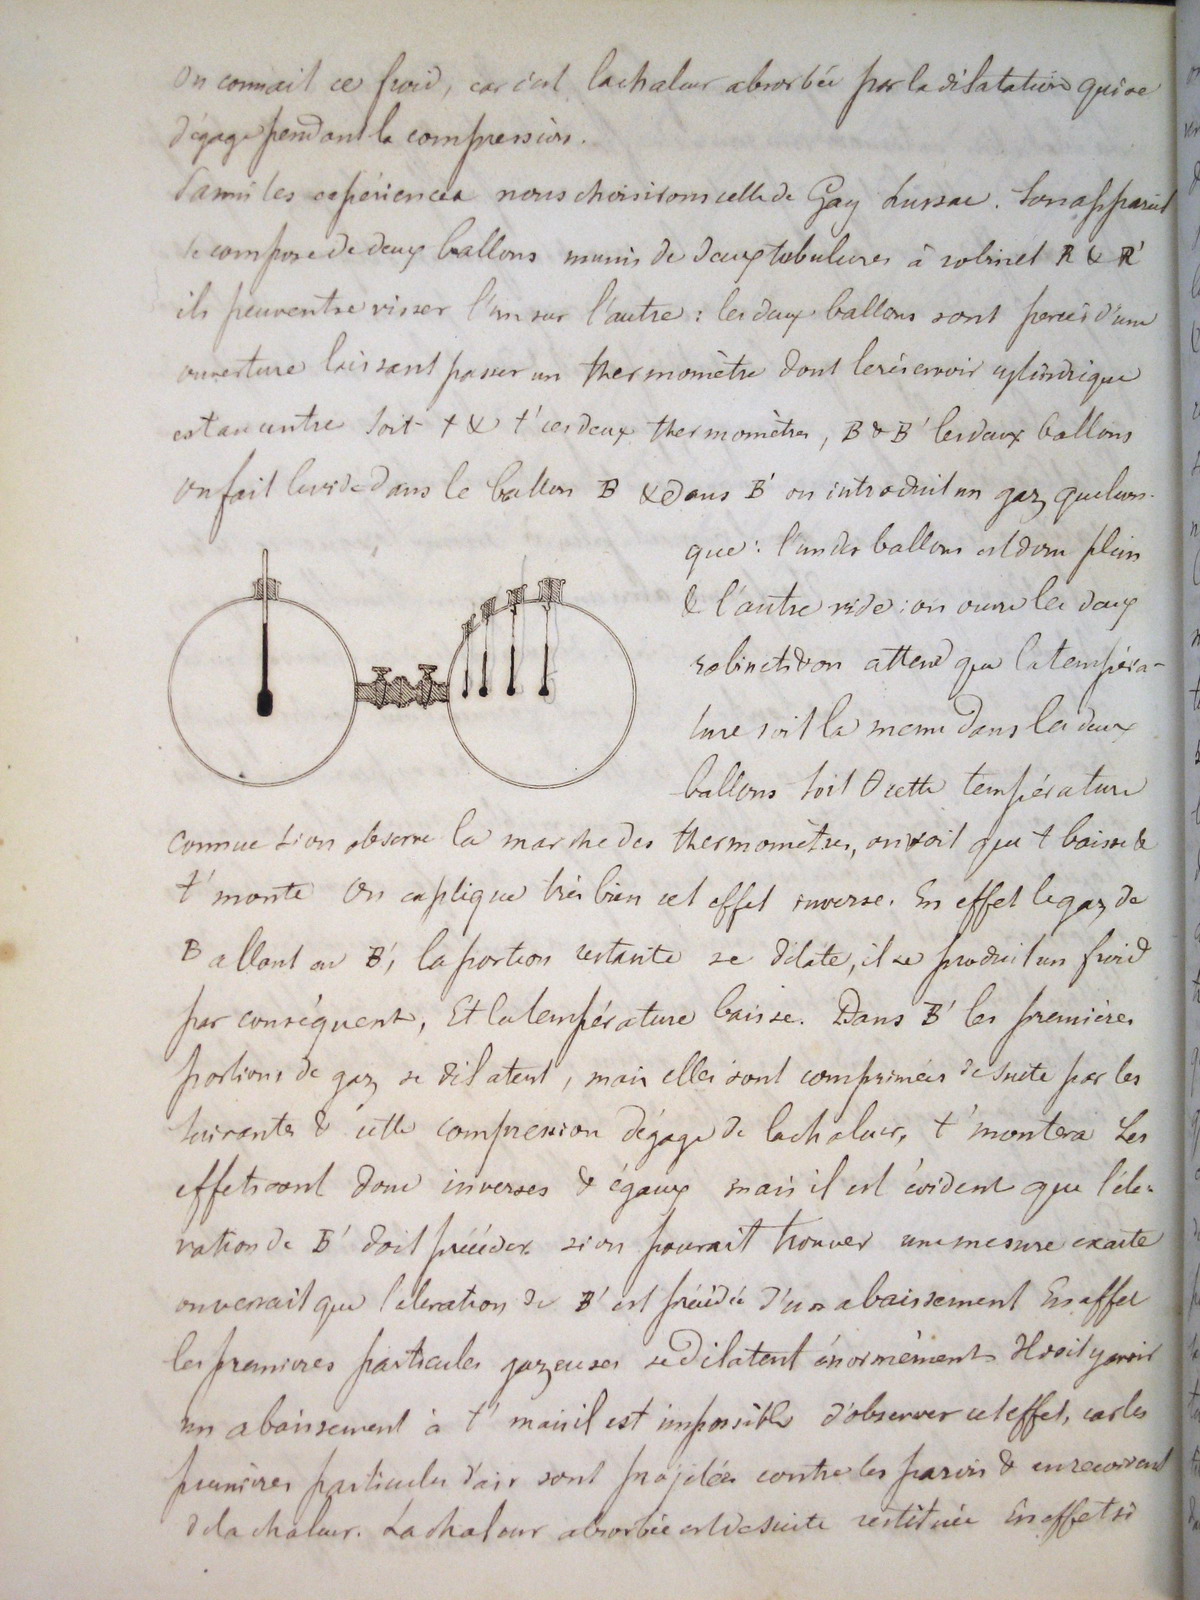 On connait ce froid, car c'est la chaleur absorbée par la dilatation qui se
dégage pendant la compression.
Parmi les expériences nous choisirons celle de Gay Lussac. Son appareil
se compose de deux ballons munis de deux tubulures à robinet R & R'
ils peuvent se visser l'un sur l'autre : les deux ballons sont percés d'une
ouverture laissant passer un thermomètre dont le réservoir cylindrique
est au centre soit t & t' ces deux thermomètres, B & B' les deux ballons
on fait le vide dans le ballon B & dans B' on introduit un gaz quelcon-
que : l'un des ballons est donc plein
& l'autre vide : on ouvre les deux
robinets & on attend que la tempéra-
ture soit la meme dans les deux
ballons soit θ cette température
connue si on observe la marche des thermomètres, on voit que t baisse &
t' monte On explique très bien cet effet inverse. En effet le gaz de
B allant en B', la portion restante se dilate, il se produit un froid
par conséquent, Et la température baisse. Dans B' les premières
portions de gaz se dilatent, mais elles sont comprimées de suite par les
suivantes & cette compression dégage de la chaleur, t' montera Les
effets sont donc inverses & égaux mais il est évident que l'élé-
vation de B' doit précéder si on pouvait trouver une mesure exacte
on verrait que l'élévation de B' est précédée d'un abaissement En effet
les premieres particules gazeuses se dilatent énormément Il doit y avoir
un abaissement à t' mais il est impossible d'observer cet effet, car les
premières particules d'air sont projetées contre les parois & en recoivent
de la chaleur. La chaleur absorbée est de suite restituée En effet si